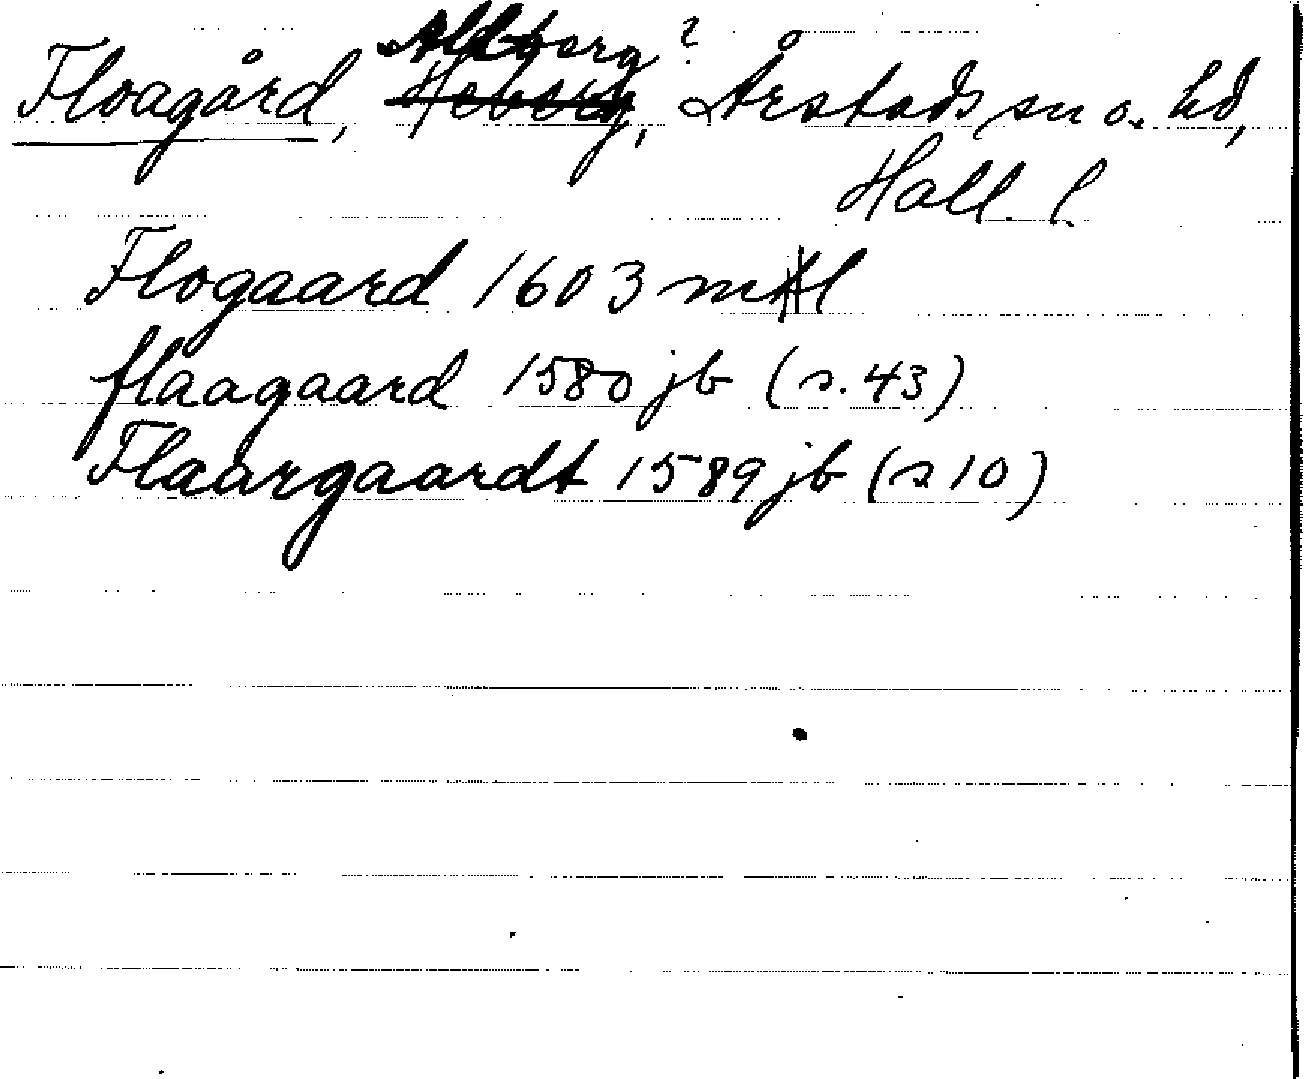 Floagård, Aldberg?, Årstads sn o. hd,
Hall. l.
Flogaard 1603 mtl
flaagaard 1580 jb (s. 43)
Flaargaardt 1589 jb (s 10)